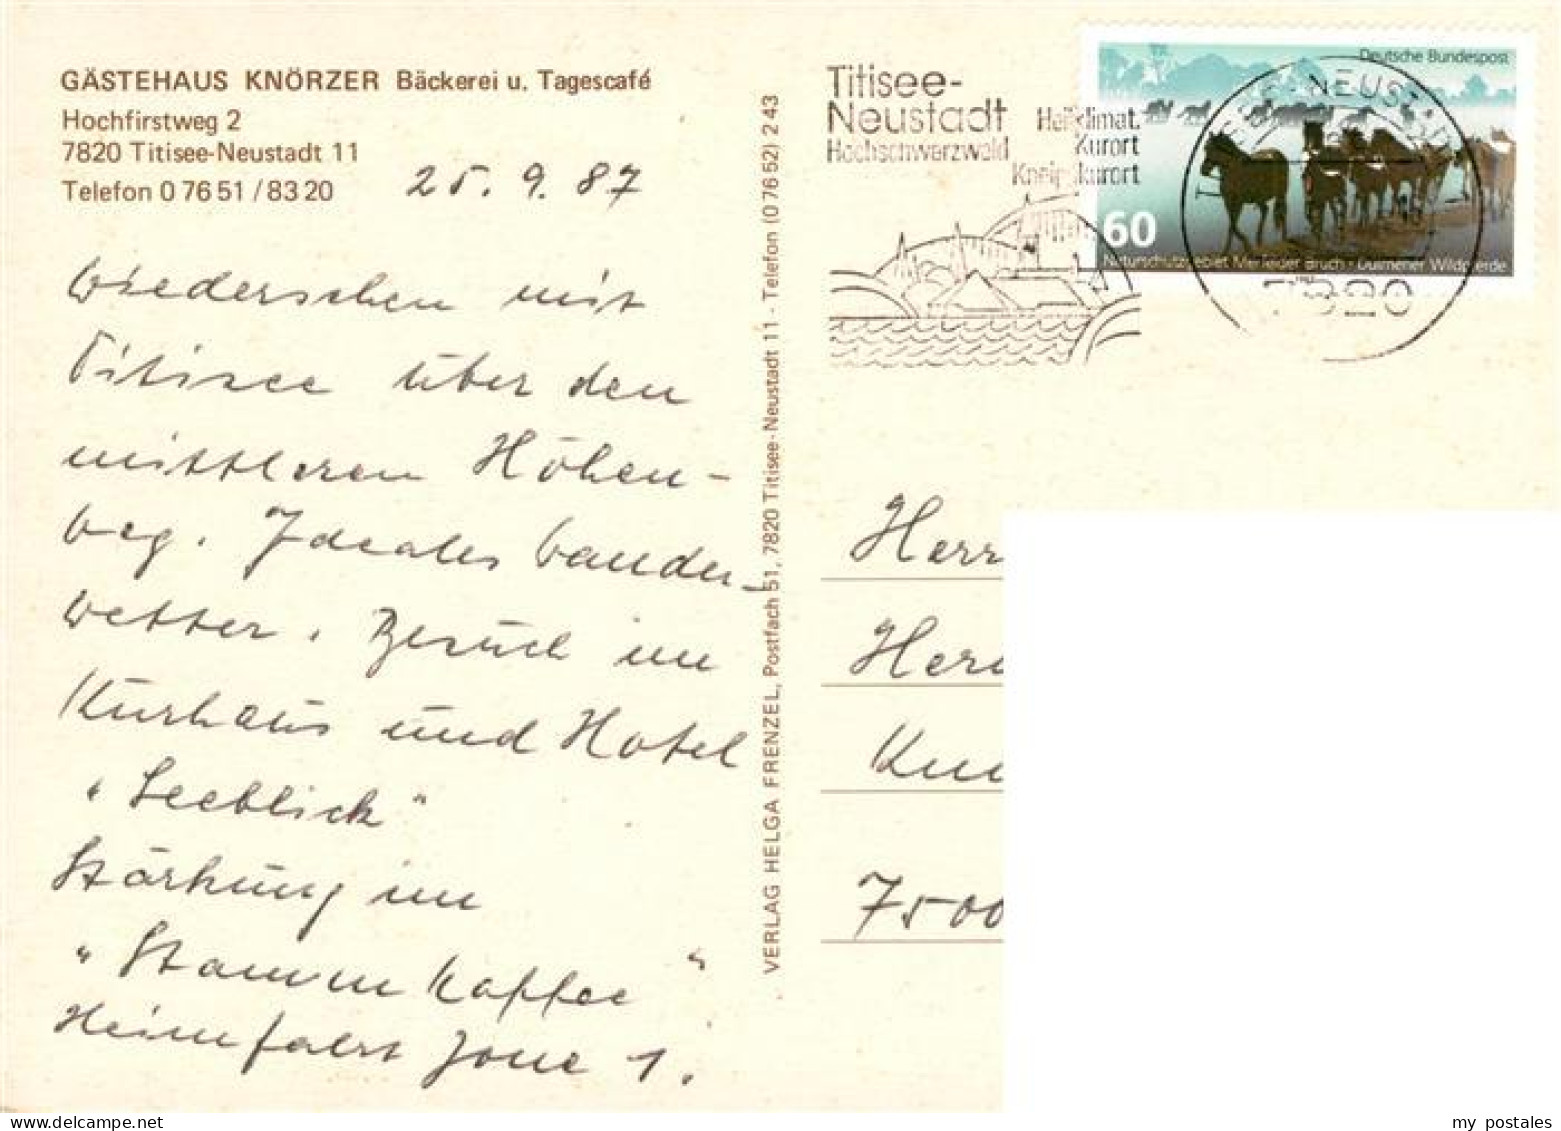 GÄSTEHAUS KNÖRZER Bäckerei u. Tagescafé
Hochfirstweg 2
7820 Titisee-Neustadt 11
Telefon 0 76 51 / 83 20
25. 9. 87
Wiedersehen mit
Titisee über den
mittleren Höhen-
weg. Ideales Wander-
wetter. Besuch im
Kurhaus und Hotel
"Seeblick"
Stärkung im
"Stammkaffee"
Heimfahrt Zone 1.
VERLAG HELGA FRENZEL, Postfach 51, 7820 Titisee-Neustadt 11 - Telefon (0 76 52) 2 43
Titisee-
Neustadt
Hochschwarzwald
Heilklimat.
Kurort
Kneippkurort
Deutsche Bundespost
60
Naturschutzgebiet Merfelder Bruch · Dülmener Wildpferde
TITISEE-NEUSTADT
7820
Herr
Her
7500
my postales